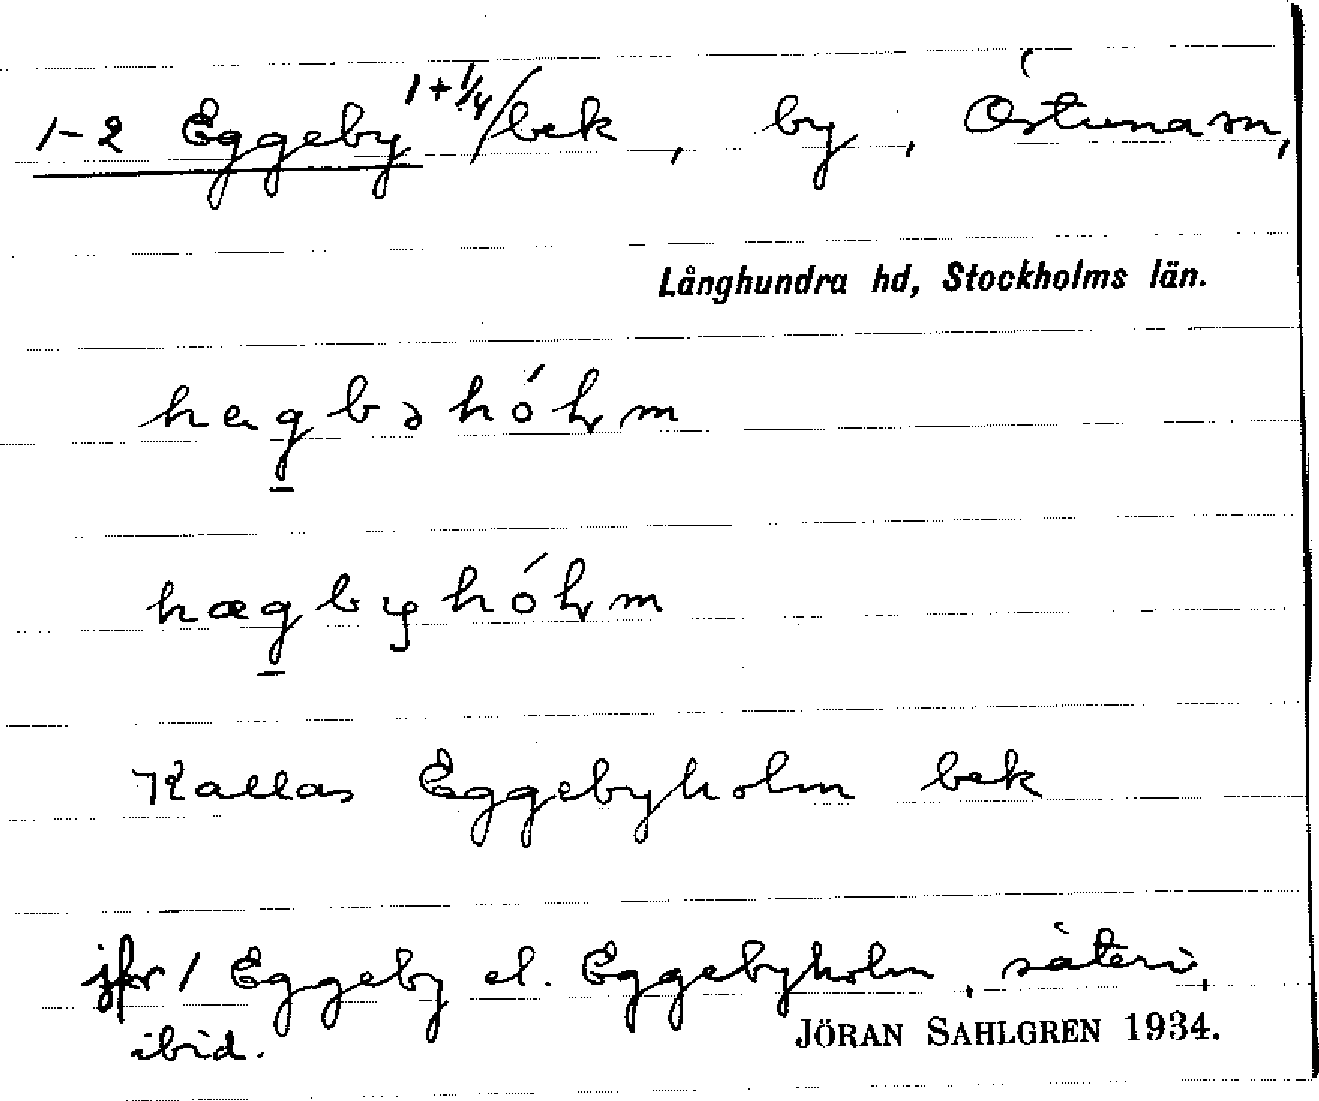 1-2 Eggeby 1+1/4/bek, by, Östuna sn,
Långhundra hd, Stockholms län.
hagbəhólm
hægbyhólm
Kallas Eggebyholm bek
jfr 1 Eggeby el. Eggebyholm, säteri,
ibid.
JÖRAN SAHLGREN 1934.